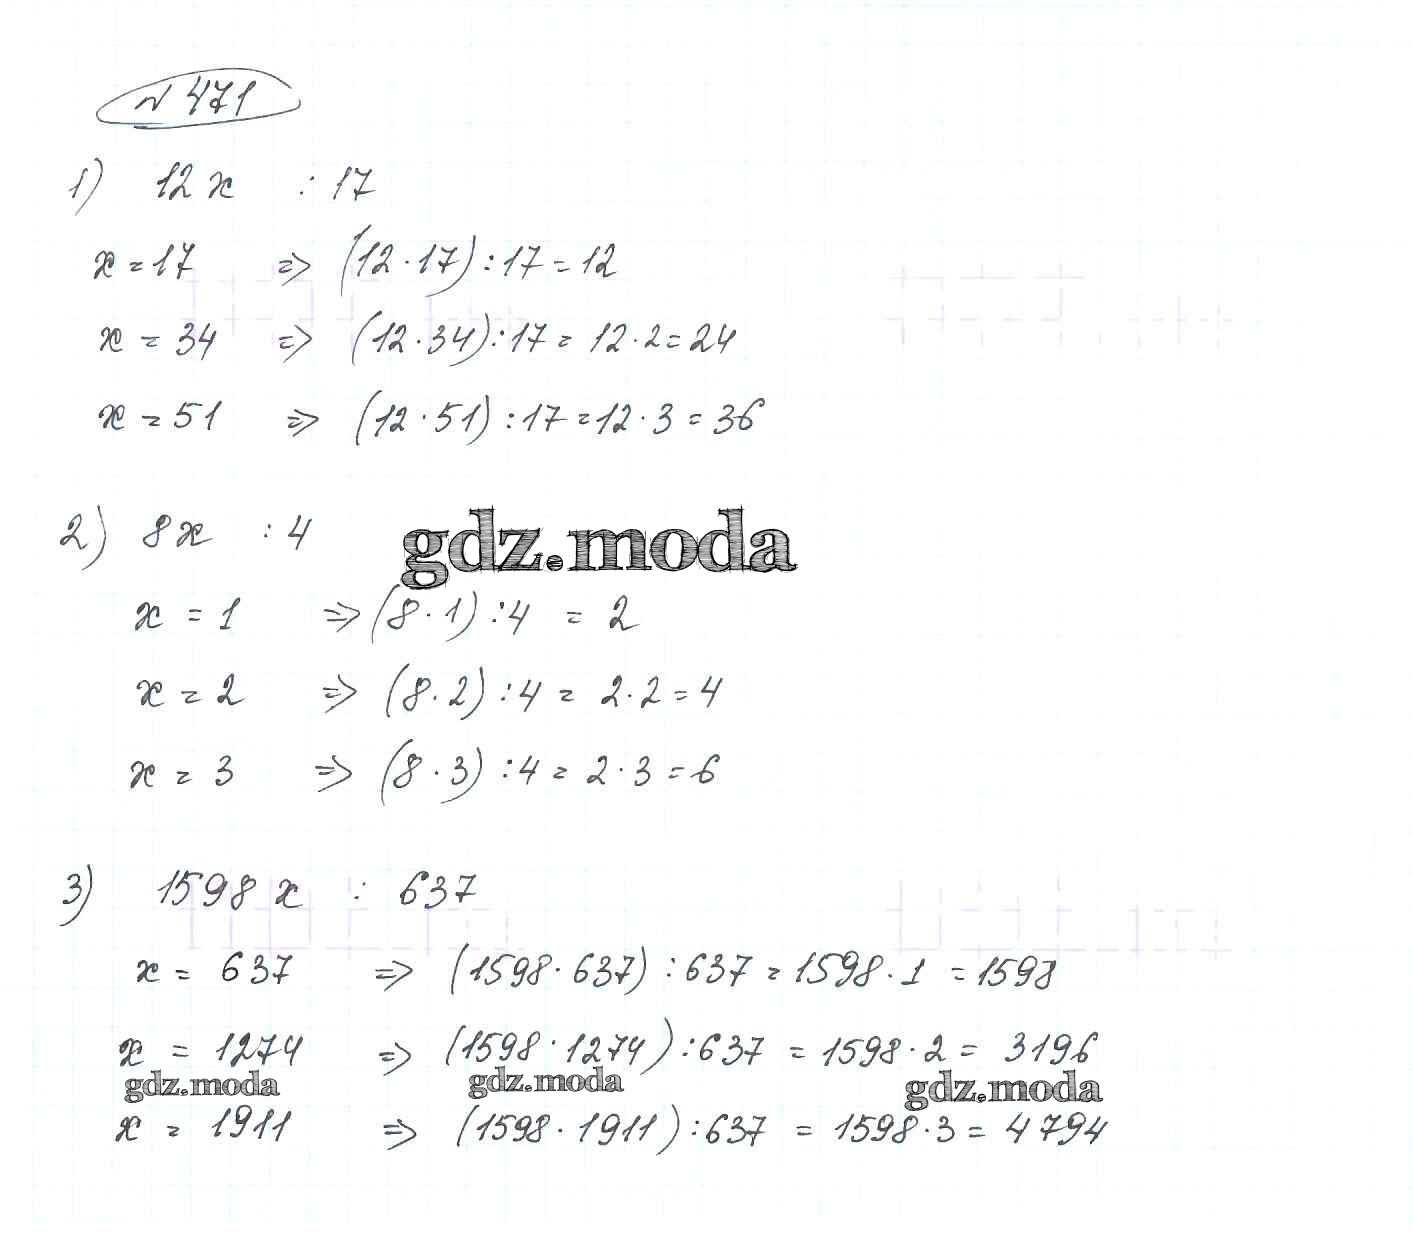 № 471
1) 12x : 17
x = 17 => (12 · 17) : 17 = 12
x = 34 => (12 · 34) : 17 = 12 · 2 = 24
x = 51 => (12 · 51) : 17 = 12 · 3 = 36
2) 8x : 4
gdz.moda
x = 1 => (8 · 1) : 4 = 2
x = 2 => (8 · 2) : 4 = 2 · 2 = 4
x = 3 => (8 · 3) : 4 = 2 · 3 = 6
3) 1598x : 637
x = 637 => (1598 · 637) : 637 = 1598 · 1 = 1598
x = 1274 => (1598 · 1274) : 637 = 1598 · 2 = 3196
gdz.moda gdz.moda gdz.moda
x = 1911 => (1598 · 1911) : 637 = 1598 · 3 = 4794